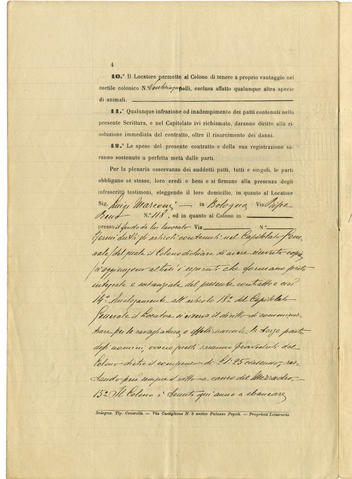 4
10.° Il Locatore permette al Colono di tenere a proprio vantaggio nel
cortile colonico N. polli, esclusa affatto qualunque altra specie
di animali.
11.° Qualunque infrazione od inadempimento dei patti contenuti nella
presente Scrittura, e nel Capitolato ivi richiamato, daranno diritto alla ri-
soluzione immediata del contratto, oltre il risarcimento dei danni.
12.° Le spese del presente contratto e della sua registrazione sa-
ranno sostenute a perfetta metà dalle parti.
Per la plenaria osservanza dei suddetti patti, tutti e singoli, le parti
obbligano se stesse, loro eredi e beni e si firmano alla presenza degli
infrascritti testimoni, eleggendo il loro domicilio, in quanto al Locatore
Sig. Luigi Marconi in Bologna Via Ripa
Reno N. 118, ed in quanto al Colono in
presso il fondo da lui lavorato Via N.
articoli contenuti nel Capitolato Gene-
rale, del quale il Colono dichiara di avere ricevuto copia,
s'aggiungono altresì i seguenti che formano parte
integrale e sostanziale del presente contratto e cioè
14° Analogamente all'articolo 18° del Capitolato
Generale il Locatore si riserva il diritto di
la terza parte
degli uomini,
Colono dietro il compenso di Lt. 25 ciascuno,
sempre il vitto a carico del Mezzadro.
15° Il Colono è tenuto ogni anno a
Bologna, Tip. Cenerelli. — Via Castiglione N. 8 antico Palazzo Pepoli. — Proprietà Letteraria